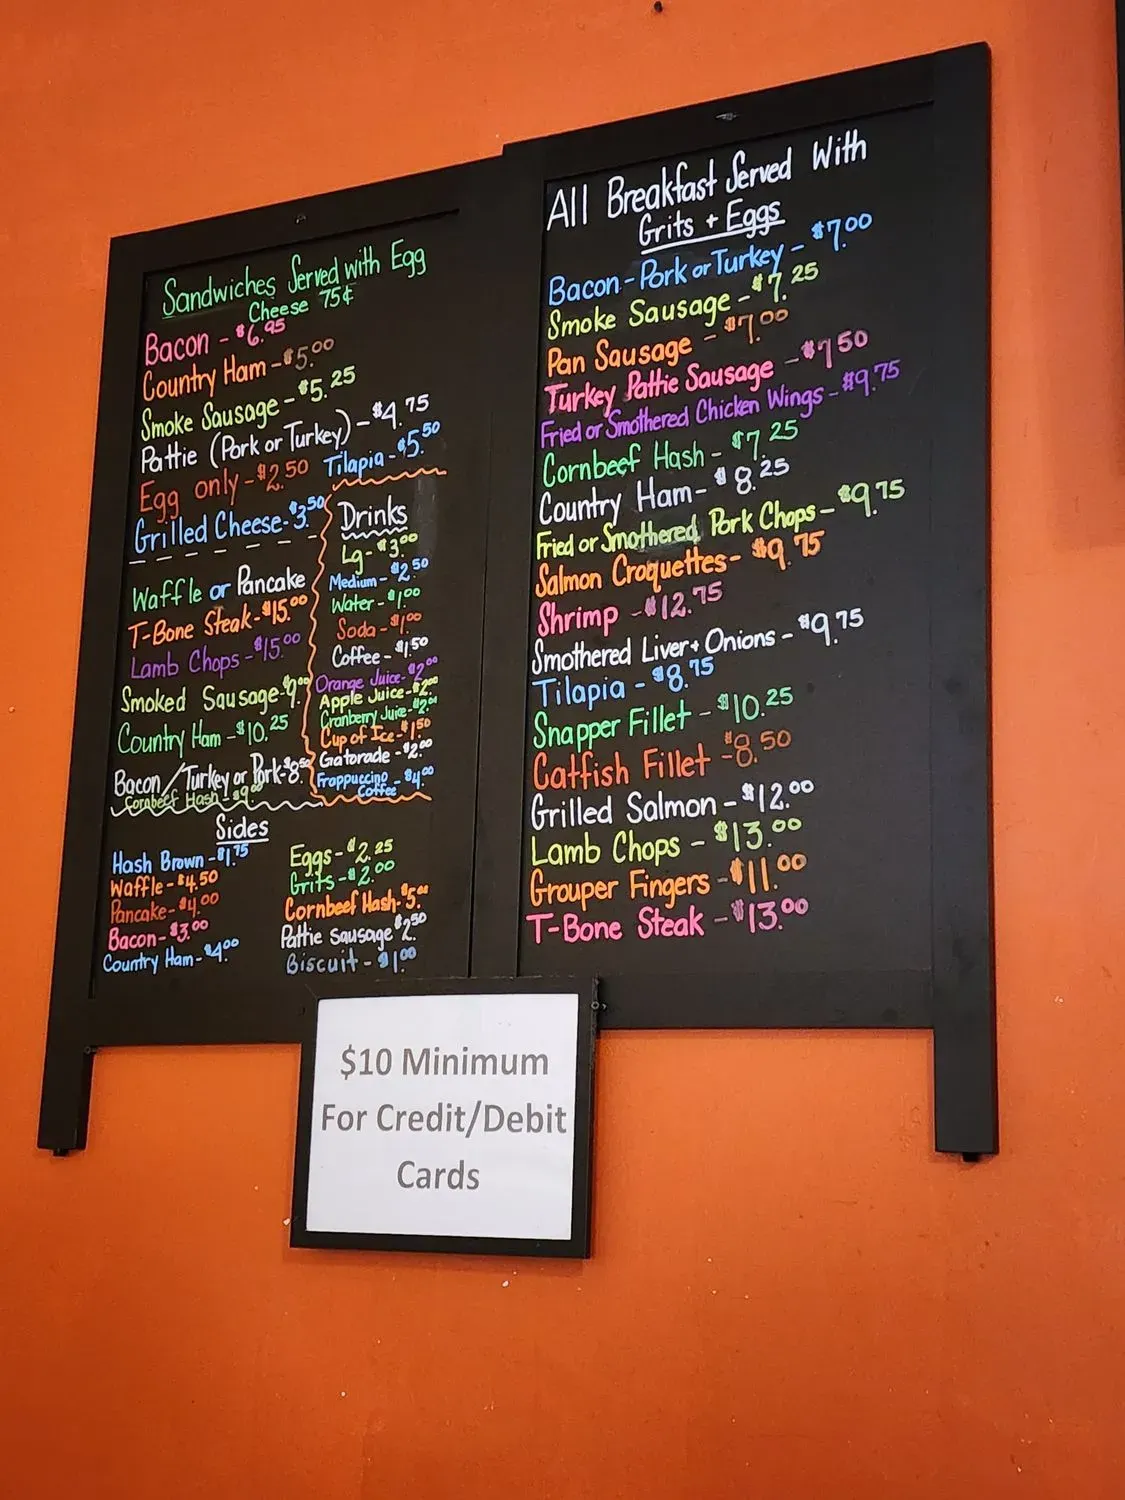 Sandwiches Served with Egg
Cheese 75¢
Bacon - $6.95
Country Ham - $5.00
Smoke Sausage - $5.25
Pattie (Pork or Turkey) - $4.75
Tilapia - $5.50
Egg only - $2.50
Grilled Cheese - $3.50
Waffle or Pancake
T-Bone Steak - $15.00
Lamb Chops - $15.00
Smoked Sausage - $9.00
Country Ham - $10.25
Bacon / Turkey or Pork - $8.50
Cornbeef Hash - $9.00
Drinks
Lg - $3.00
Medium - $2.50
Water - $1.00
Soda - $1.00
Coffee - $1.50
Orange Juice - $2.00
Apple Juice - $2.00
Cranberry Juice - $2.00
Cup of Ice - $1.50
Gatorade - $2.00
Frappuccino
Coffee - $4.00
Sides
Hash Brown - $1.75
Waffle - $4.50
Pancake - $4.00
Bacon - $3.00
Country Ham - $4.00
Eggs - $2.25
Grits - $2.00
Cornbeef Hash - $5.00
Pattie Sausage $2.50
Biscuit - $1.00
All Breakfast Served With
Grits + Eggs
Bacon - Pork or Turkey - $7.00
Smoke Sausage - $7.25
Pan Sausage - $7.00
Turkey Pattie Sausage - $7.50
Fried or Smothered Chicken Wings - $9.75
Cornbeef Hash - $7.25
Country Ham - $8.25
Fried or Smothered Pork Chops - $9.75
Salmon Croquettes - $9.75
Shrimp - $12.75
Smothered Liver + Onions - $9.75
Tilapia - $8.75
Snapper Fillet - $10.25
Catfish Fillet - $8.50
Grilled Salmon - $12.00
Lamb Chops - $13.00
Grouper Fingers - $11.00
T-Bone Steak - $13.00
$10 Minimum
For Credit/Debit
Cards